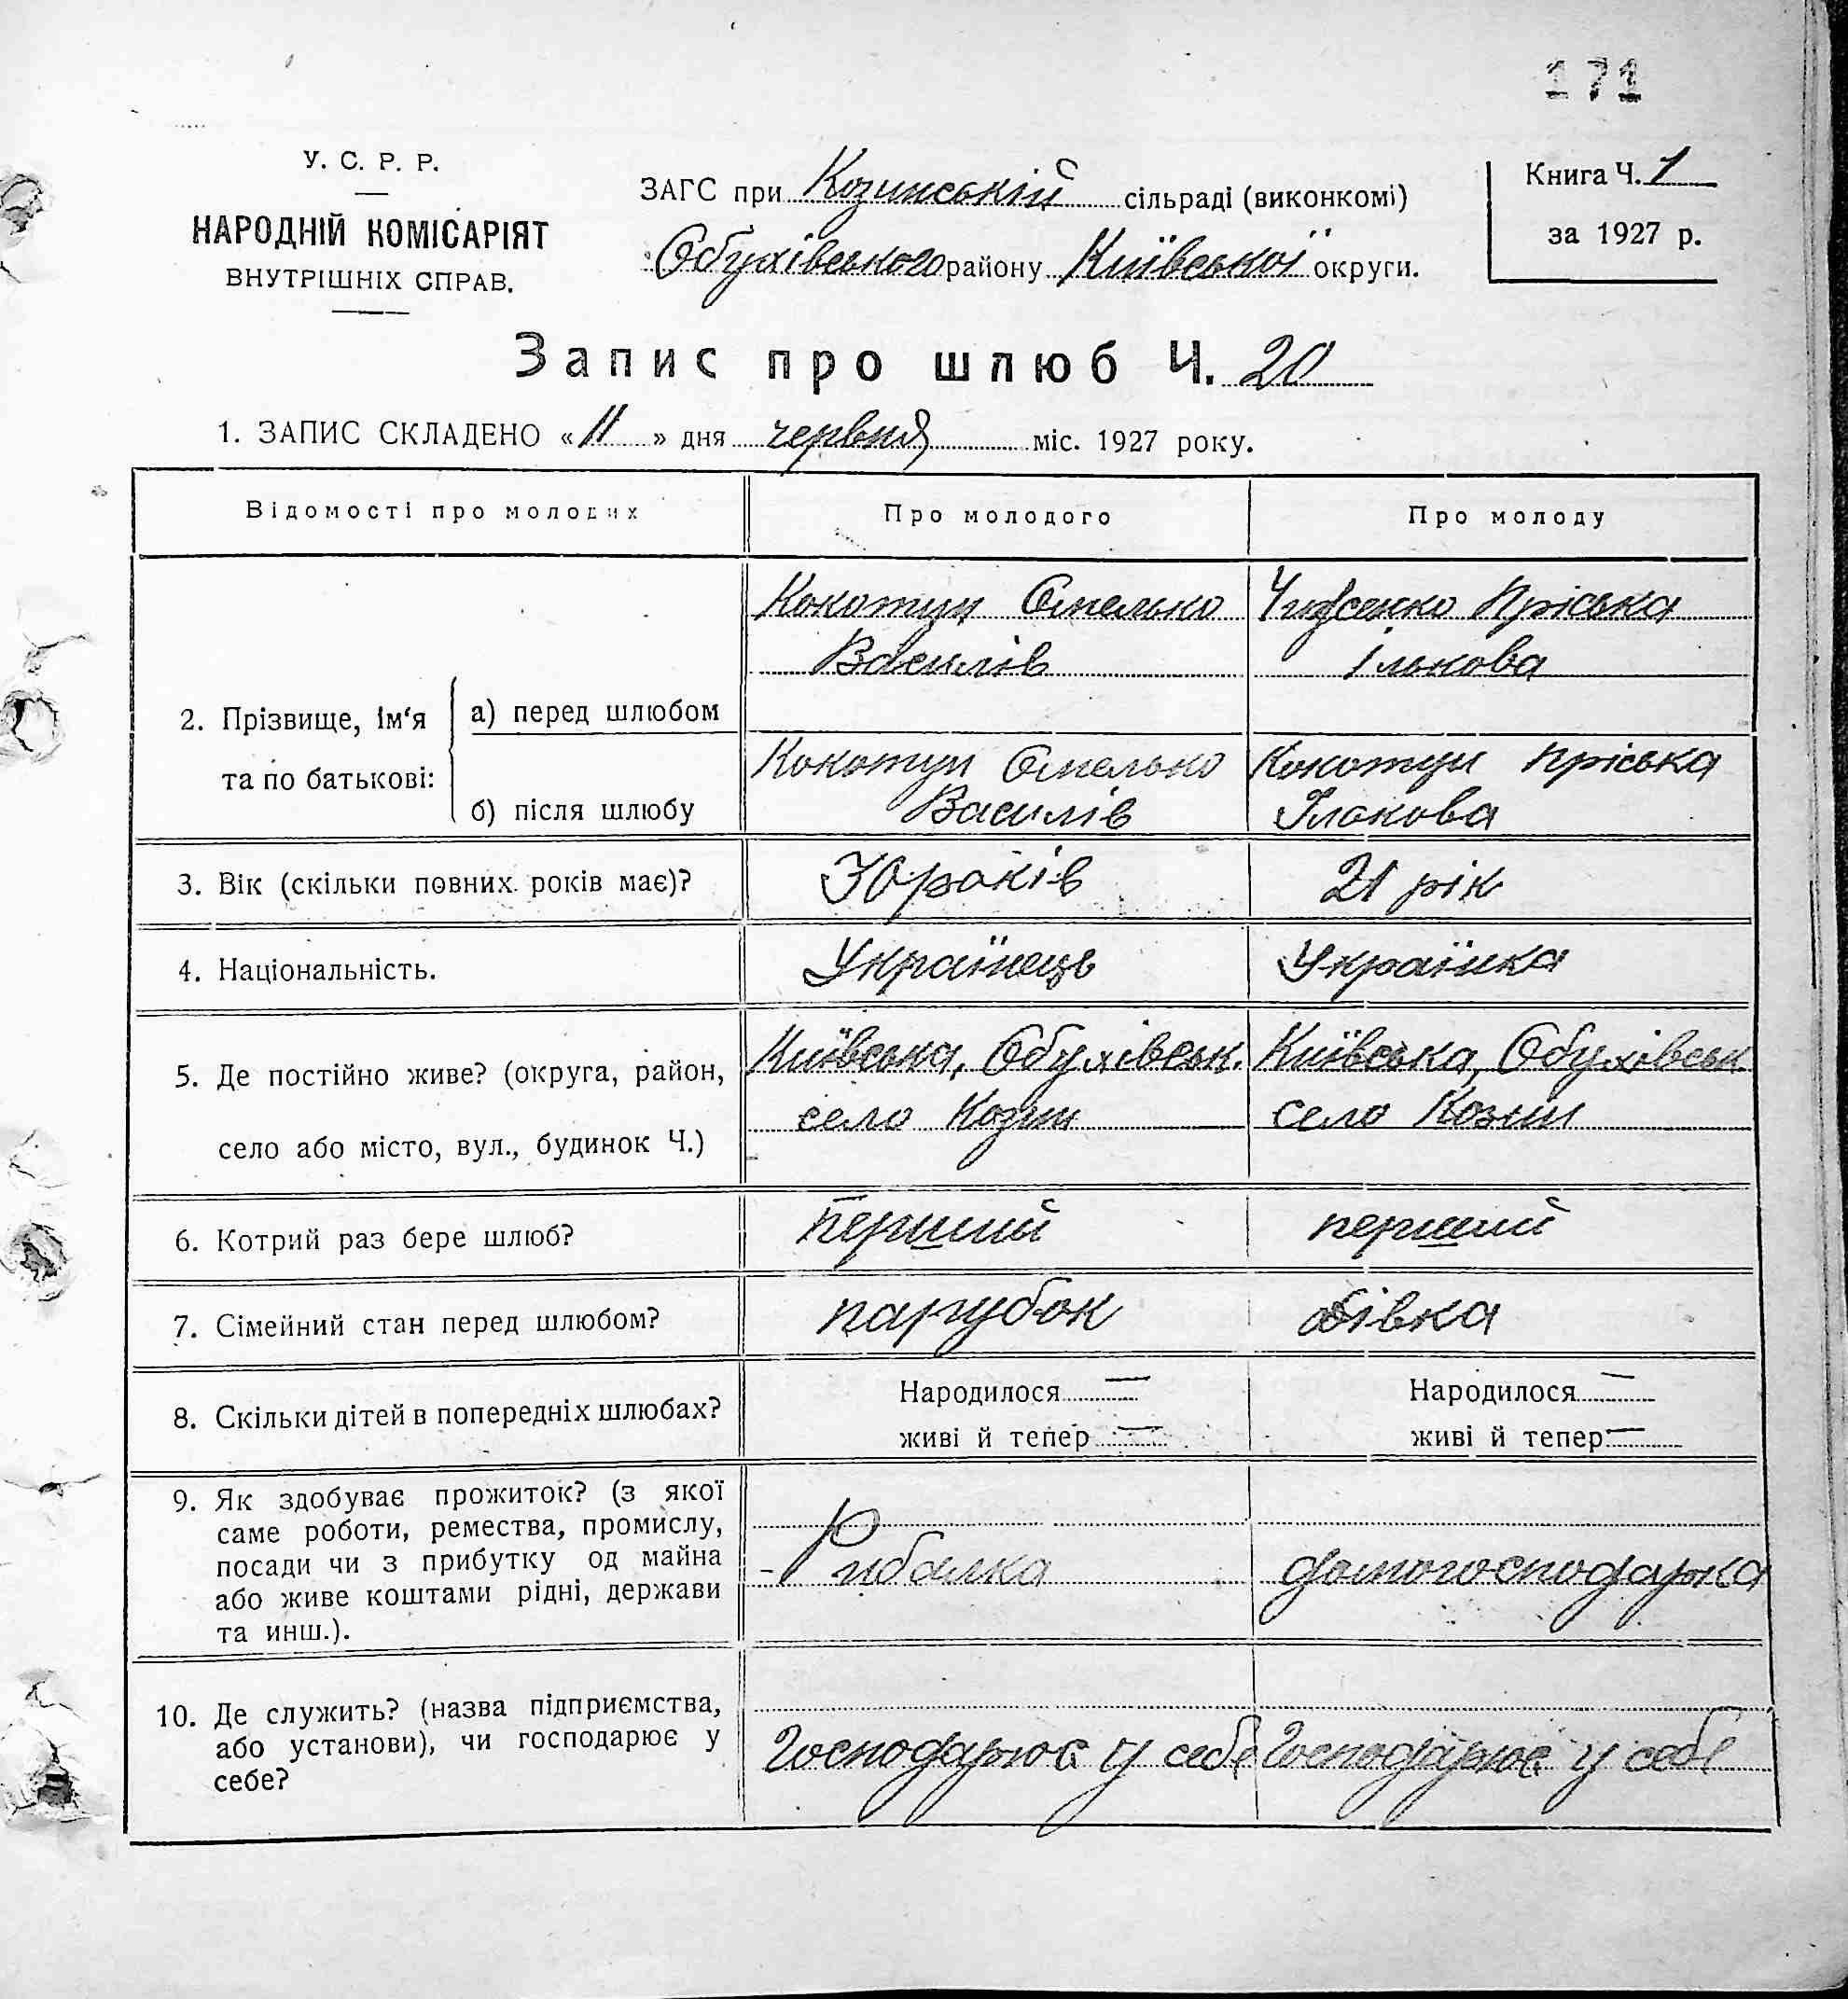 171
У. С. Р. Р.
НАРОДНІЙ КОМІСАРІЯТ
ВНУТРІШНІХ СПРАВ.
ЗАГС при Козинській сільраді (виконкомі)
Обухівського району Київської округи.
Книга Ч. 1
за 1927 р.
Запис про шлюб Ч. 20
1. ЗАПИС СКЛАДЕНО « 11 » дня червня міс. 1927 року.
Відомості про молодих
Про молодого
Про молоду
2. Прізвище, ім'я та по батькові:
а) перед шлюбом
Кокотун Омелько
Василів
Чиженко Пріська
Ількова
б) після шлюбу
Кокотун Омелько
Василів
Кокотун Пріська
Ількова
3. Вік (скільки повних років має)?
30 років
21 рік
4. Національність.
Українець
Українка
5. Де постійно живе? (округа, район,
село або місто, вул., будинок Ч.)
Київська, Обухівськ.
село Козин
Київська, Обухівськ
село Козин
6. Котрий раз бере шлюб?
перший
перший
7. Сімейний стан перед шлюбом?
парубок
дівка
8. Скільки дітей в попередніх шлюбах?
Народилося —
живі й тепер —
Народилося —
живі й тепер —
9. Як здобуває прожиток? (з якої
саме роботи, ремества, промислу,
посади чи з прибутку од майна
або живе коштами рідні, держави
та инш.).
Рибалка
домогосподарка
10. Де служить? (назва підприємства,
або установи), чи господарює у
себе?
Господарює у себе
Господарює у себе